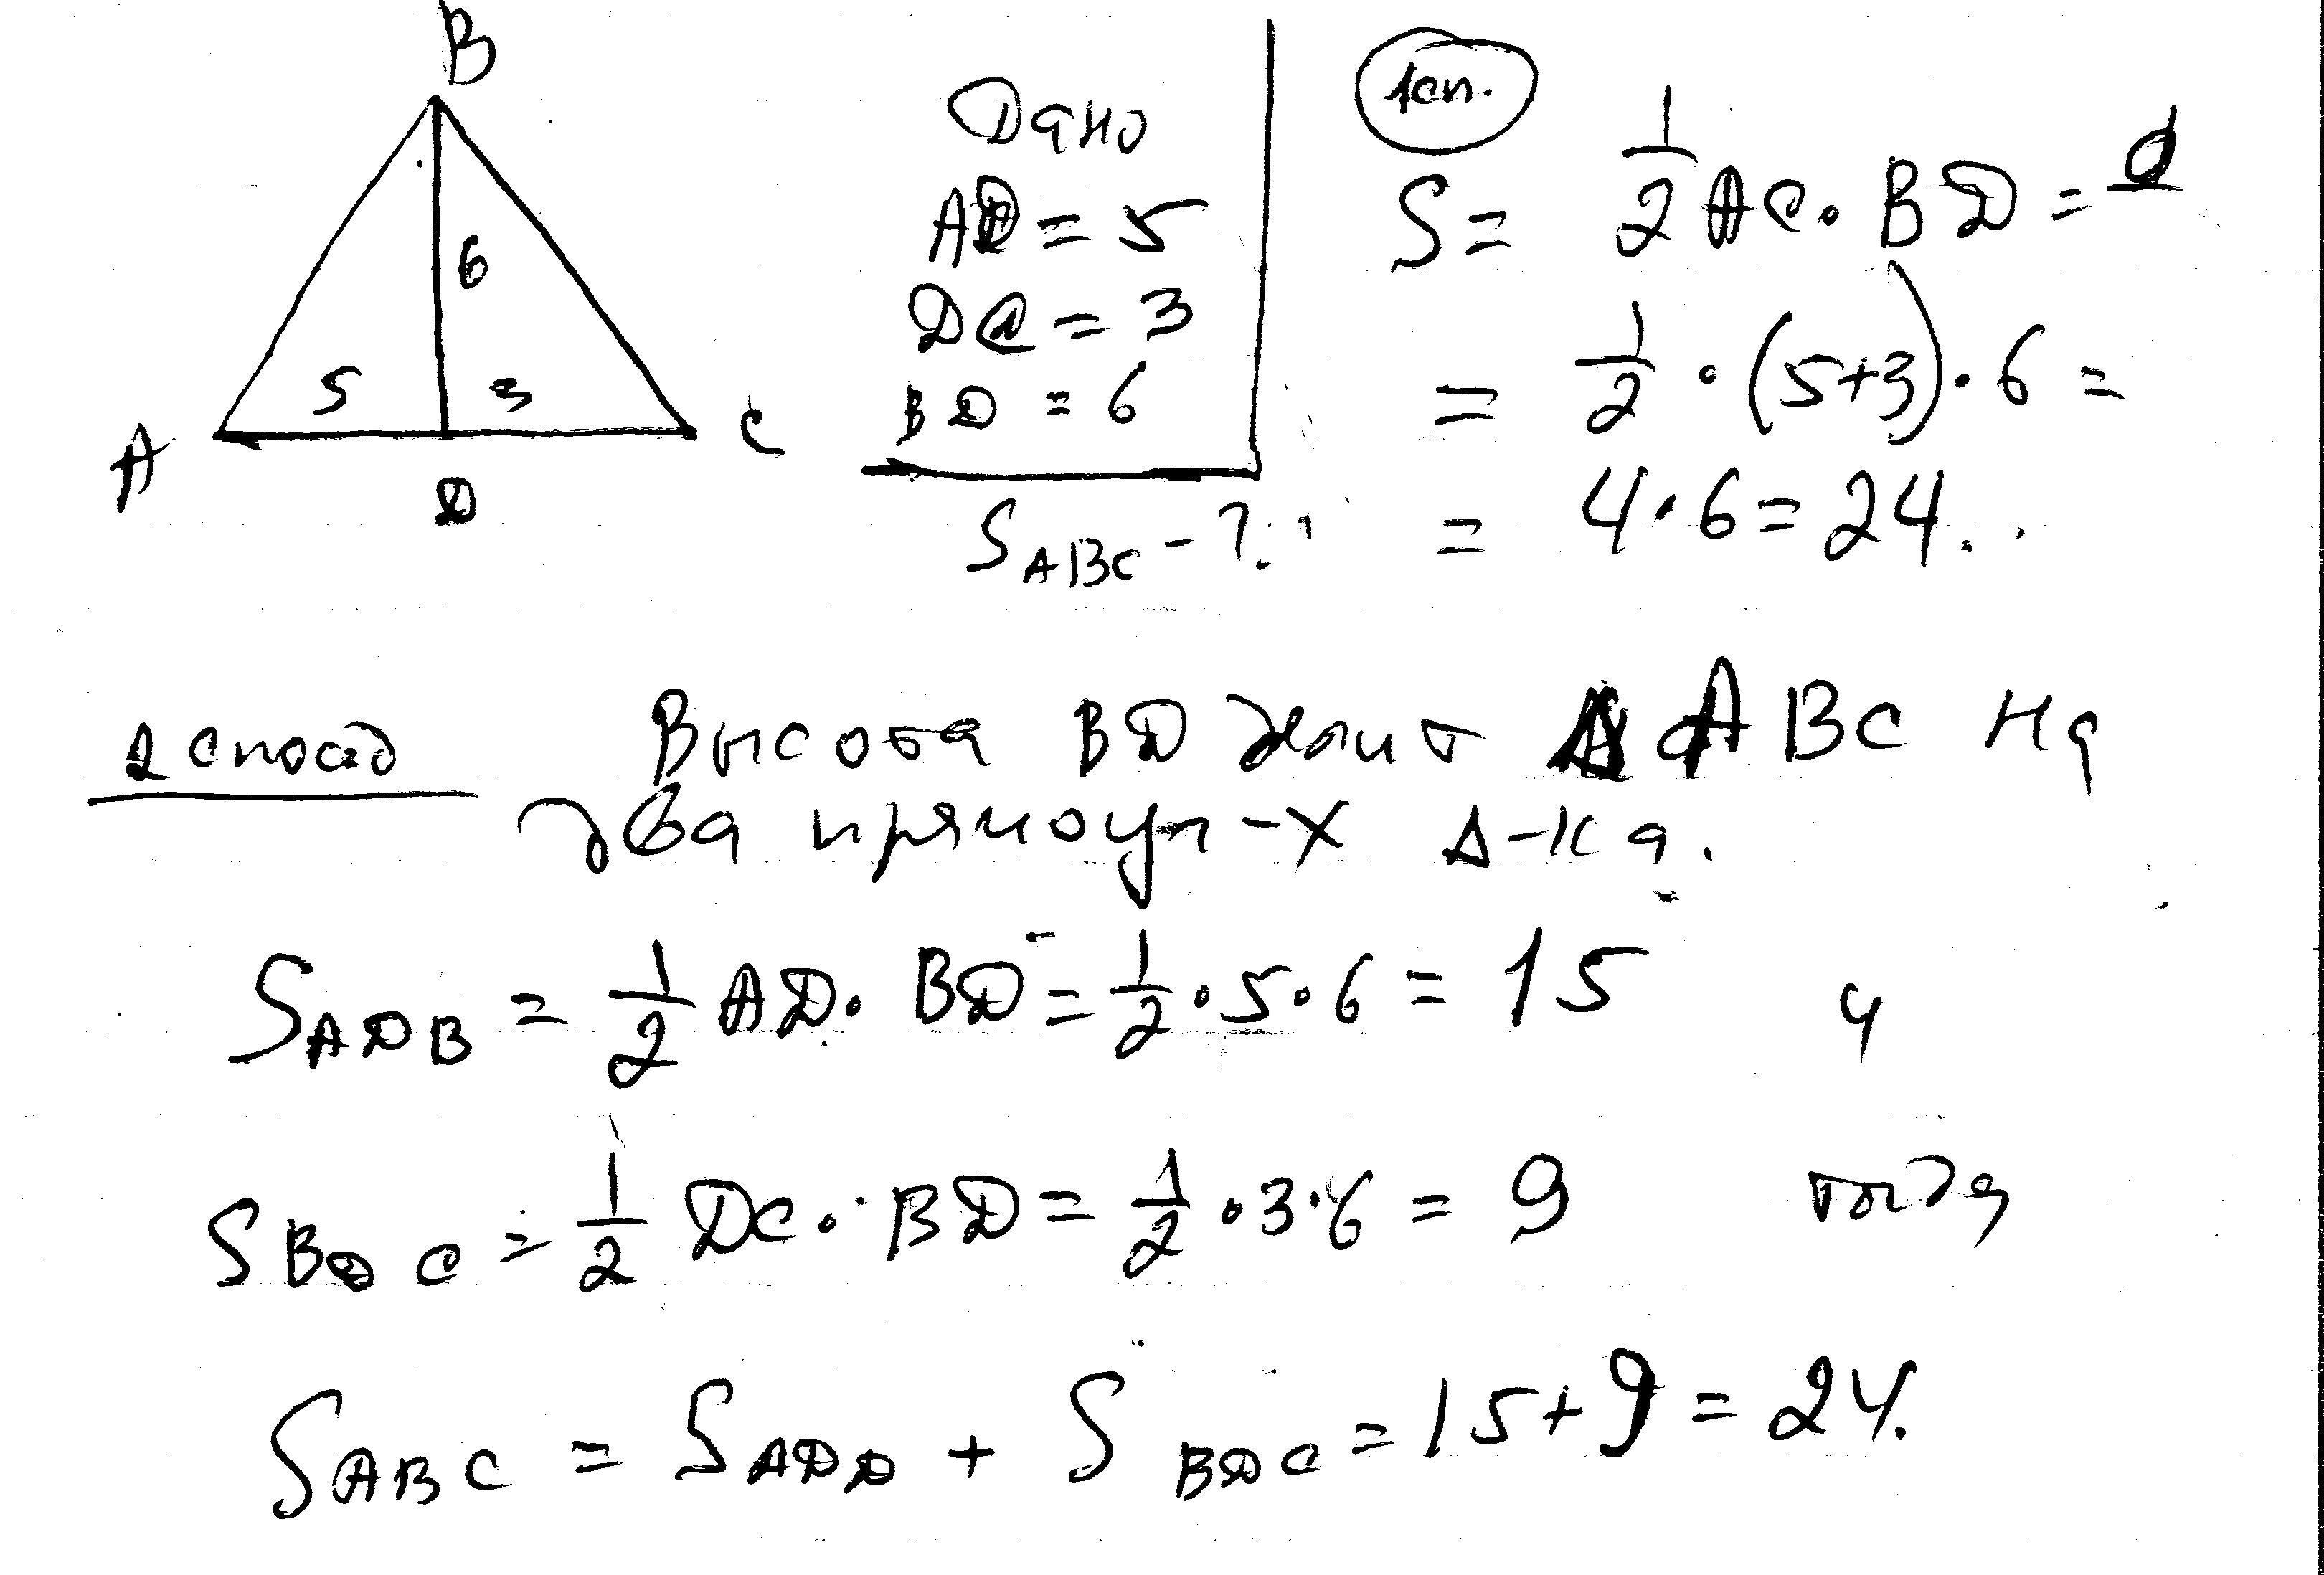 B
6
5
3
A
C
D
Дано
AD = 5
DC = 3
BD = 6
S ABC - ?
1сп.
S = 1/2 AC · BD =
= 1/2 · (5+3) · 6 =
= 4·6 = 24.
2 способ
Высота BD делит Δ ABC на
два прямоуг-х Δ-ка.
S ADB = 1/2 AD · BD = 1/2 · 5 · 6 = 15 и
S BDC = 1/2 DC · BD = 1/2 · 3 · 6 = 9 тогда
S ABC = S ADD + S BDC = 15 + 9 = 24.